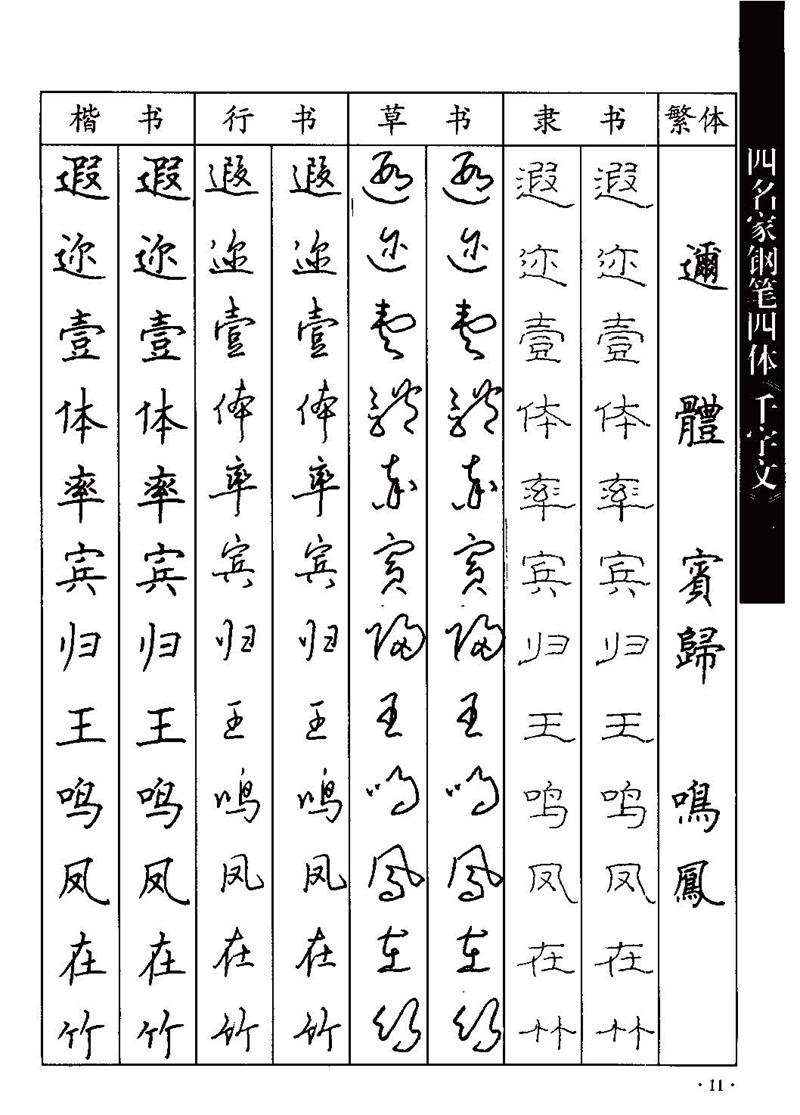 楷书 行书 草书 隶书 繁体
遐 遐 遐 遐 遐 遐 遐 遐
迩 迩 迩 迩 迩 迩 迩 迩 邇
壹 壹 壹 壹 壹 壹 壹 壹
体 体 体 体 體 體 体 体 體
率 率 率 率 率 率 率 率
宾 宾 宾 宾 賓 賓 宾 宾 賓
归 归 归 归 歸 歸 归 归 歸
王 王 王 王 王 王 王 王
鸣 鸣 鸣 鸣 鳴 鳴 鸣 鸣 鳴
凤 凤 凤 凤 鳳 鳳 凤 凤 鳳
在 在 在 在 在 在 在 在
竹 竹 竹 竹 竹 竹 竹 竹
四名家钢笔四体《千字文》
·11·